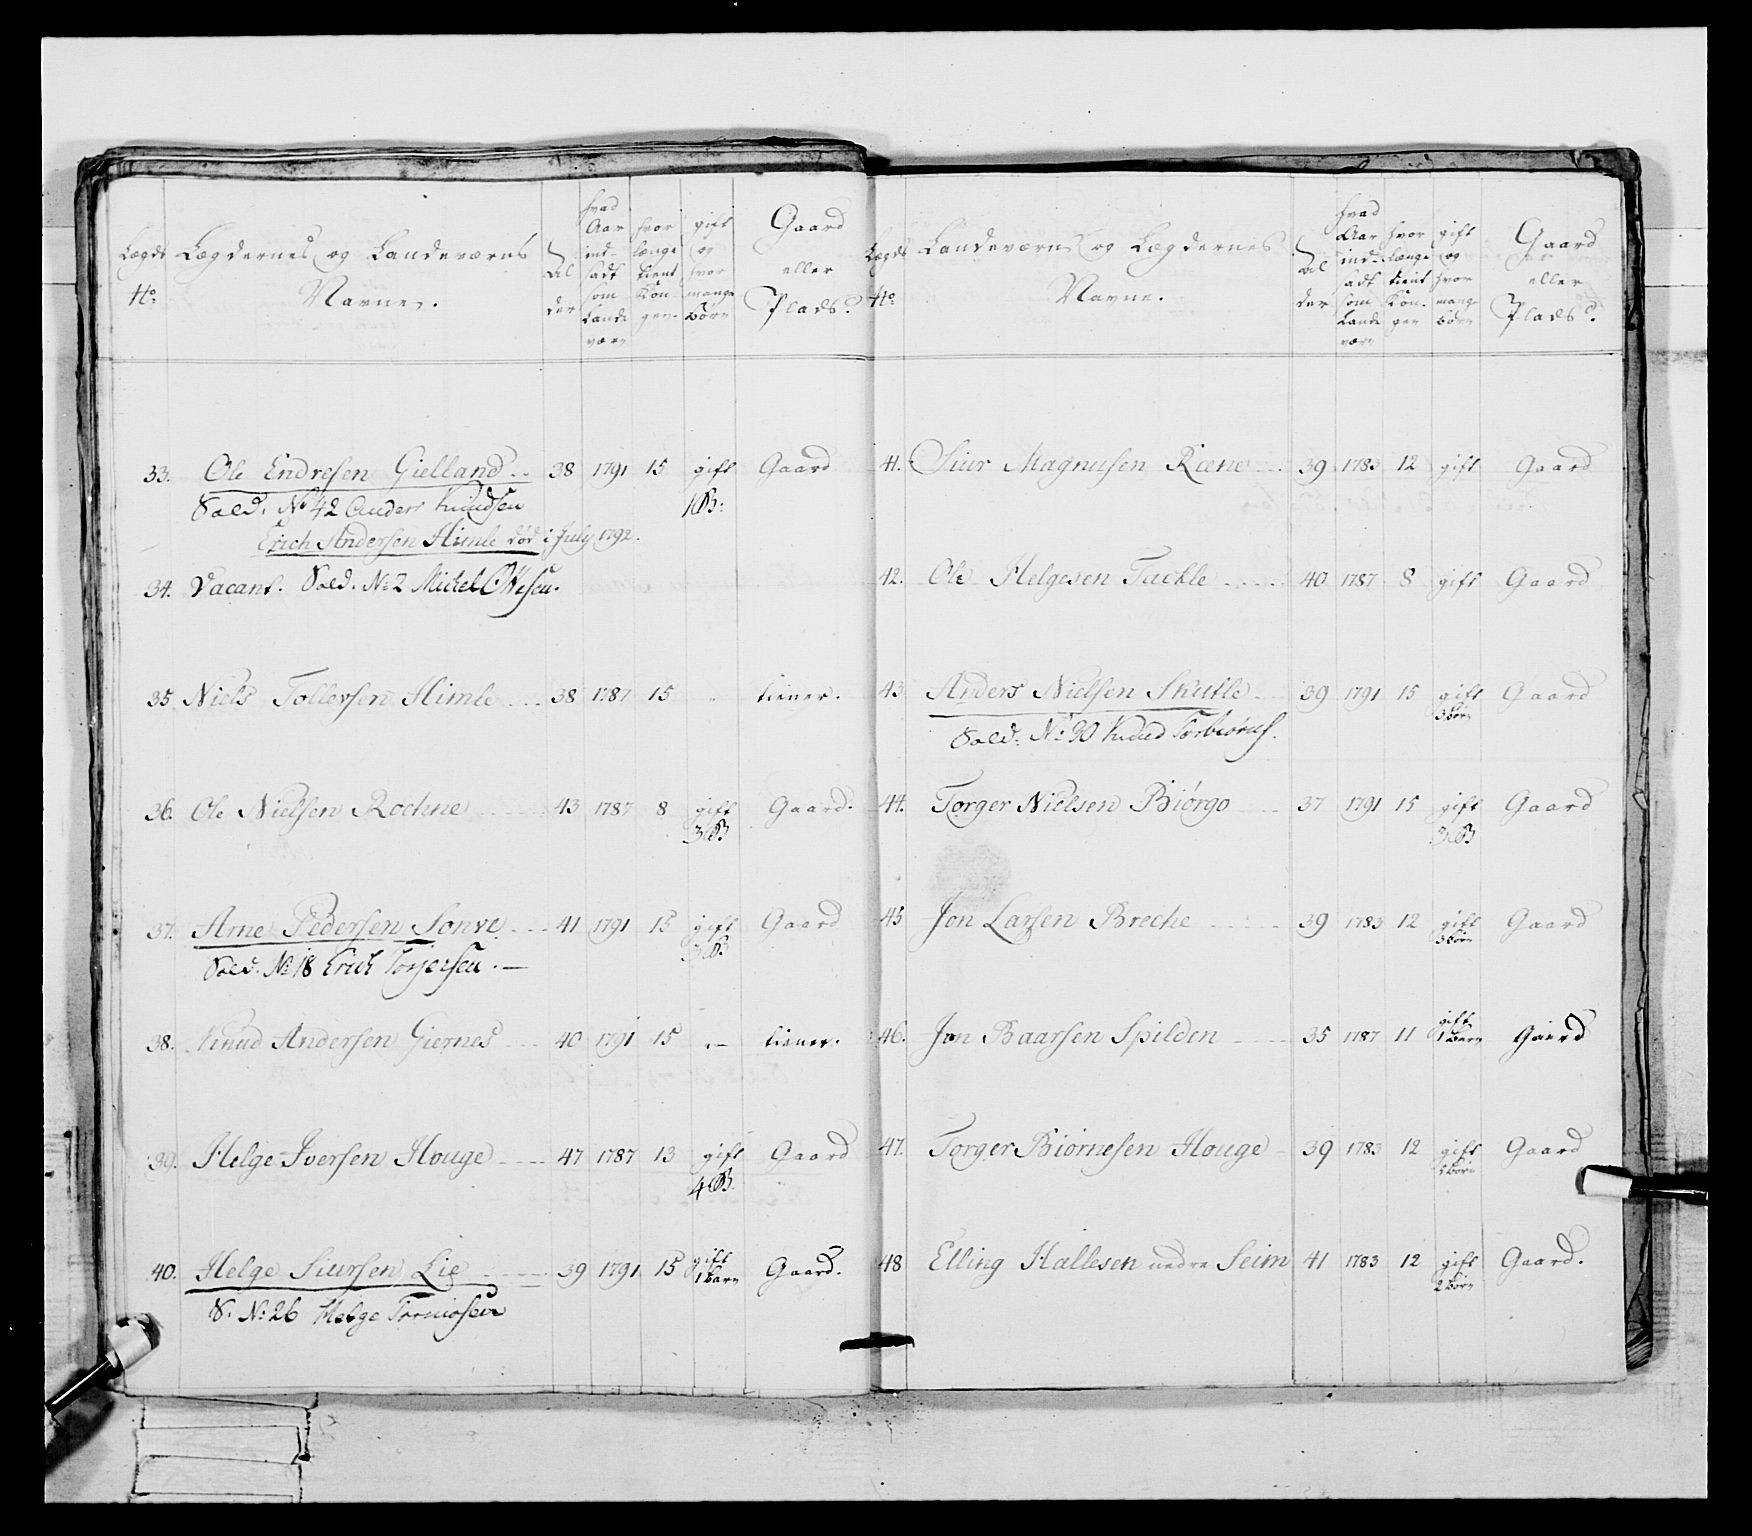 Lægds No. Lægdernes og Landeværns Navne. Alder hvad Aar indsadt som Landeværn hvor længe tient Kongen gift og hvor mange børn Gaard eller Plads.
33. Ole Endresen Gielland 38 1791 15 gift Gaard
Sold. No 42 Anders Knudsen 1 B:
Erich Andersen Himle død i July 1792.
34. Vacant. Sold. No 2 Michel
35 Niels Tollevsen Himle 38 1787 15 " tiener.
36. Ole Nielsen Rochne 43 1787 8 gift Gaard.
3 B
37. Arne Pedersen Sonve 41 1791 15 gift Gaard
3 B.
Sold. No 18 Erich Torjersen.
38. Knud Andersen Giernes 40 1791 15 " tiener.
39. Helge Iversen Houge 47 1787 13 gift Gaard
4 B.
40. Helge Siursen Lie 39 1791 15 gift Gaard.
1 barn
S. No 26 Helge
Lægds No. Landeværns og Lægdernes Navne. Alder hvad Aar indsadt som Landeværn hvor længe tient Kongen gift og hvor mange børn Gaard eller Plads.
41. Siur Magnusen Rœne 39 1783 12 gift Gaard
42. Ole Helgesen Tackle 40 1787 8 gift Gaard
43. Anders Nielsen Skutle 39 1791 15 gift Gaard
3 børn
Sold. No 30 Knud Torbiørns.
44. Torger Nielsen Biórgo 37 1791 15 gift Gaard
3 B
45 Jon Larsen Breche 39 1783 12 gift Gaard
3 børn
46. Jon Baarsen Spilden 35 1787 11 gift Gaard
1 barn
47. Torger Biørnesen Houge 39 1783 12 gift Gaard
børn
48 Elling Hallesen nedre Seim 41 1783 12 gift Gaard.
2 børn